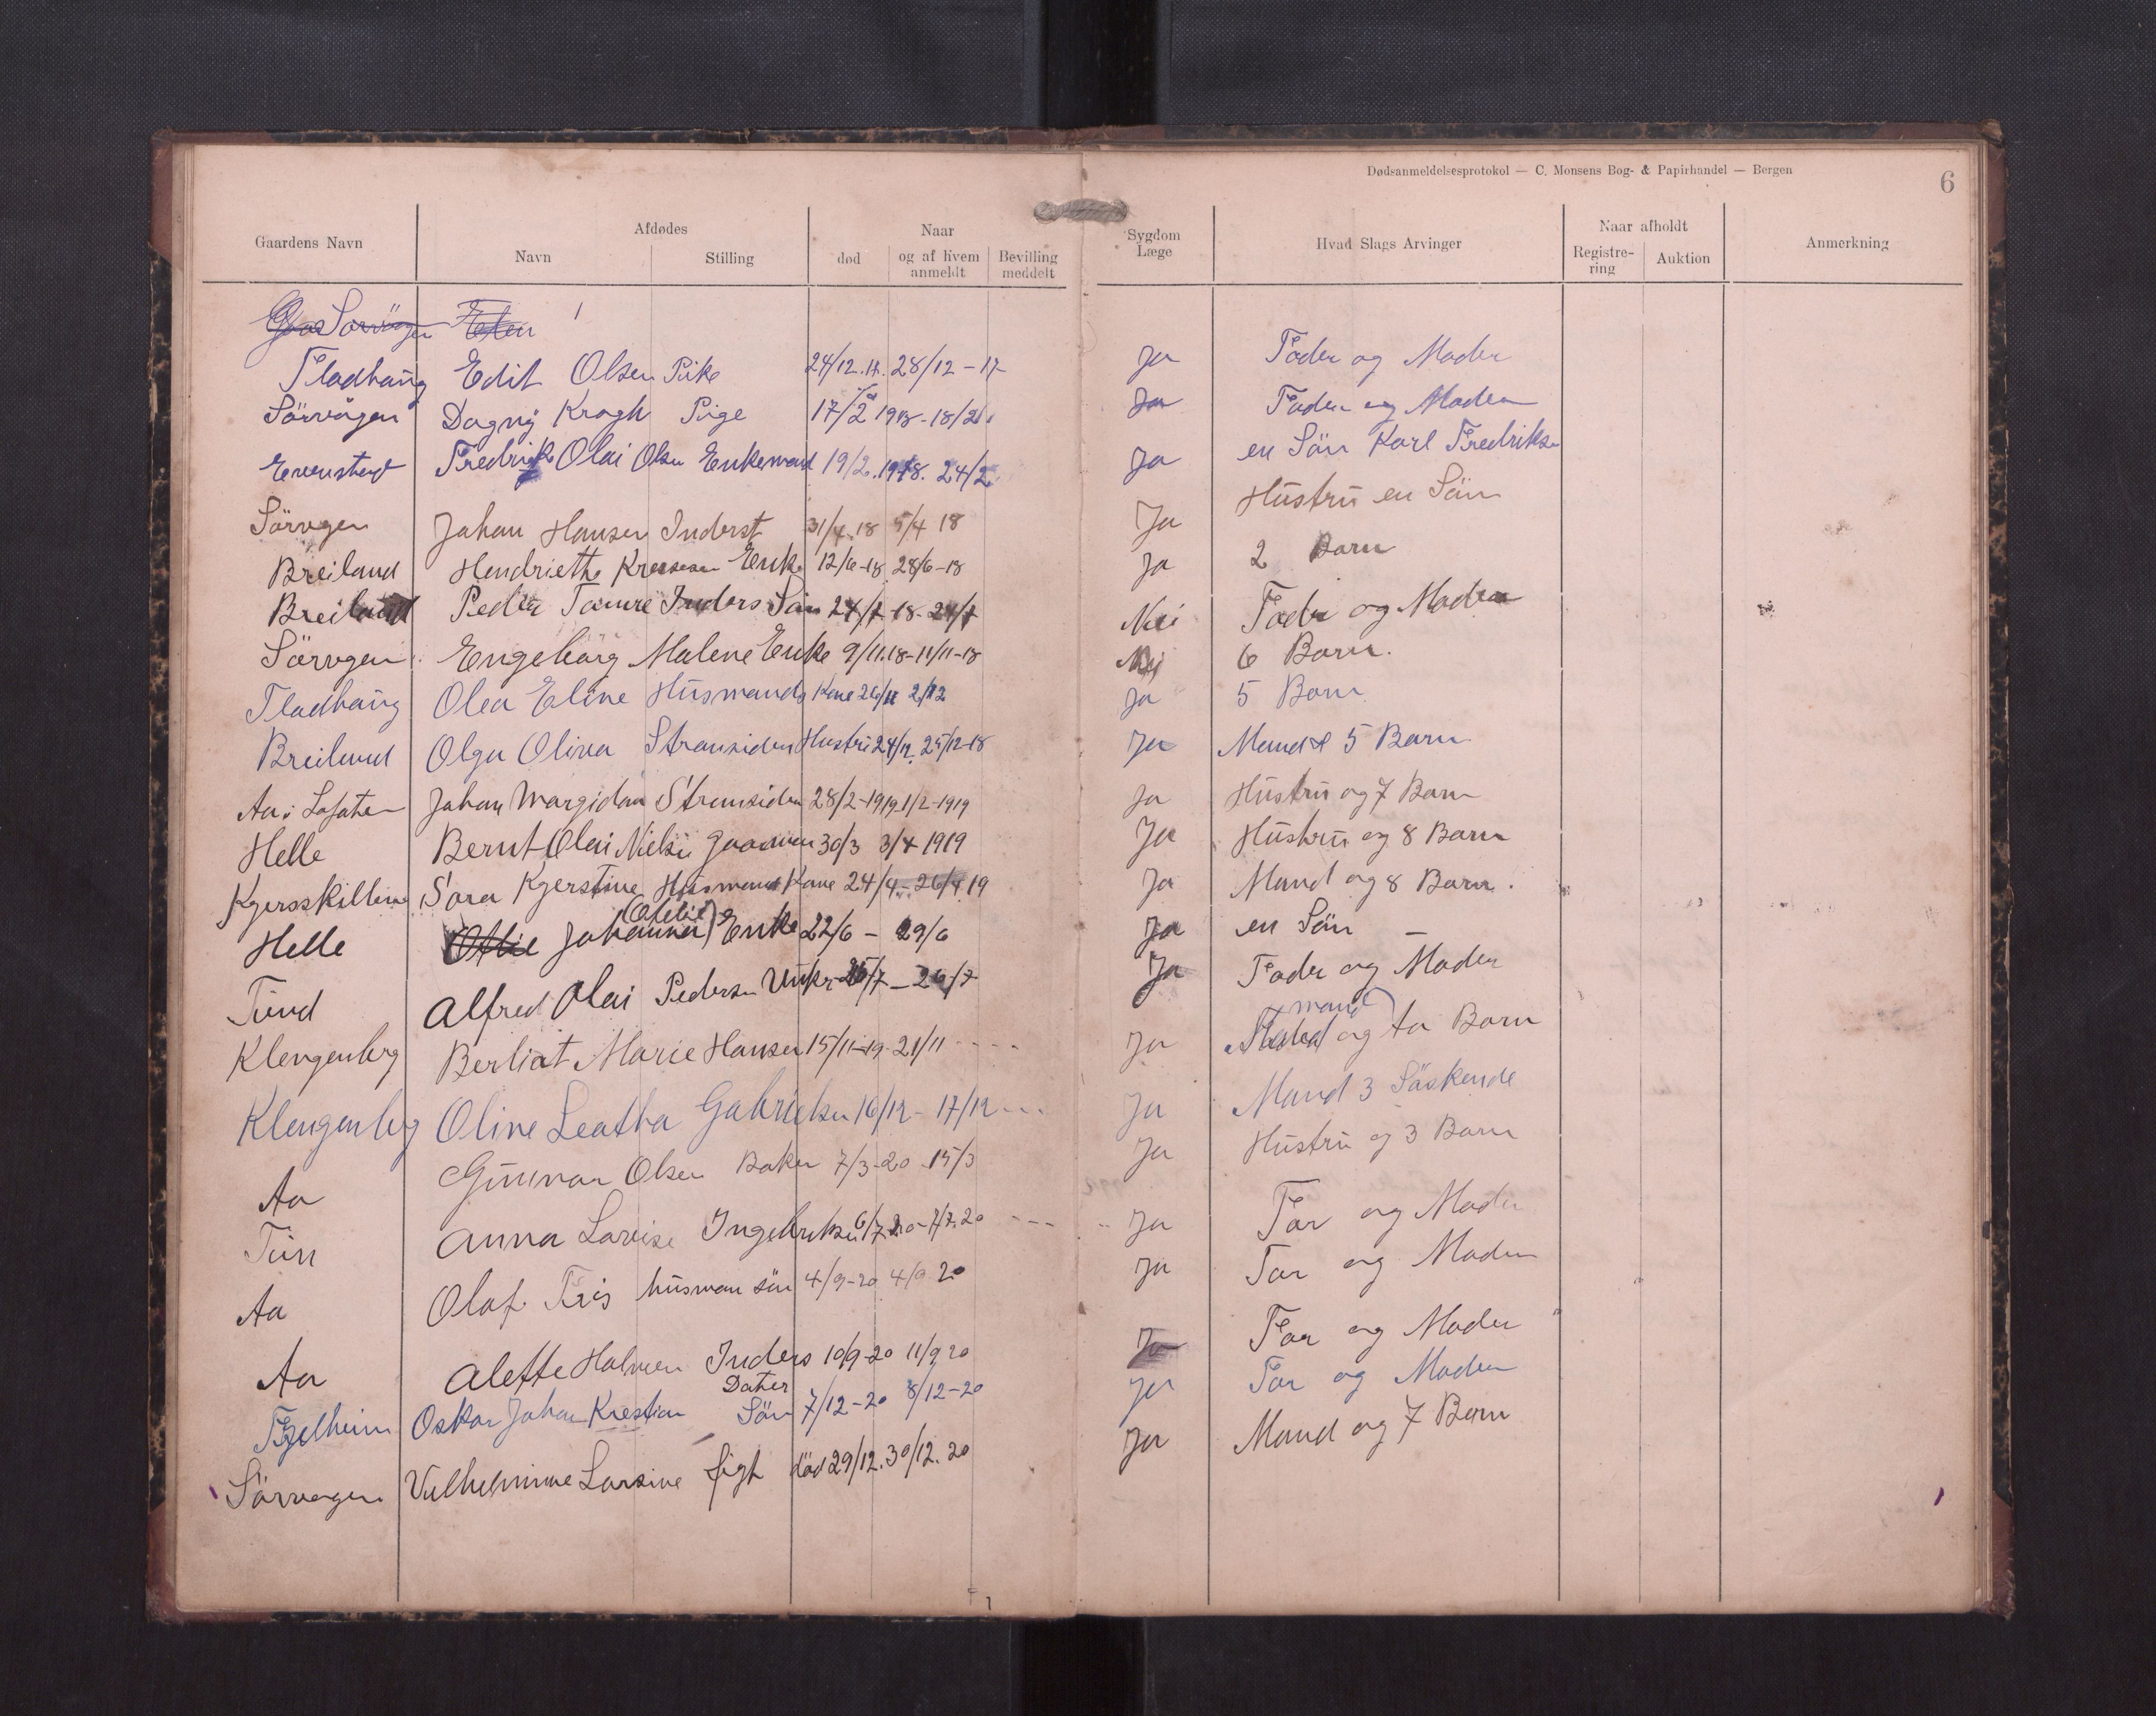 Dødsanmeldelsesprotokol — C. Monsens Bog- & Papirhandel — Bergen
6
Gaardens Navn Afdødes Navn Stilling Naar død og af hvem anmeldt Bevilling meddelt Sygdom Læge Hvad Slags Arvinger Naar afholdt Registrering Auktion Anmerkning
Sørvågen Elen
Fladhaug Edit Olsen Pike 24/12.17. 28/12-17 Ja Fader og Moder
Sörvågen Dagny Krogh Pige 17/2 1918-18/2 Ja Fader og Moder
Evenstad Fredrik Olai Olsen Enkemand 19/2.1918. 24/2 Ja en Sön Karl Fredriksen
Sörvgen Johan Hansen Inderst 31/4.18 5/4 18 Ja Hustru en Sön
Breiland Hendriethe Enke 12/6-18 28/6-18 Ja 2 Barn
Breiland Peder Inders Sön 24/7-18-24/7 Nei Fader og Moder
Sörvgen Engebörg Malene Enke 9/11.18-11/11-18 Nej 6 Barn.
Fladhaug Olea Eline Husmands Kone 26/11 2/12 Ja 5 Barn
Breiland Olga Oliva Stransiden Hustru 24/12. 25/12-18 Ja Mand & 5 Barn
Aa i Lofoten Johan Margidan Stransiden 28/2-1919 1/2-1919 Ja Hustru og 7 Barn
Helle Bernt Olai Nielsen 30/3 3/4 1919 Ja Hustru og 8 Barn
Sara Kjerstine Husmand Kone 24/4-26/4 19 Ja Mand og 8 Barn.
Helle Otilie Johanna (Otilie) Enke 22/6 - 29/6 Ja en Sön
Tind Alfred Olai Pedersen 25/7-26/7 Ja Fader og Moder
Klengenberg Berliat Marie Hansen 15/11-19-21/11 Ja mand og to Barn
Klengenberg Oline Leatha Gabrielsen 16/12-17/12 Ja Mand 3 Söskende
Aa Gunnar Olsen Baker 7/3-20-15/3 Ja Hustru og 3 Barn
Tin Anna Lovise Ingebriksen 6/7 20-7/7.20 Ja Far og Moder
Aa Olaf Friis husman sön 4/9-20 4/9 20 Ja Far og Moder
Aa Alette Holmen Inders Dater 10/9-20 11/9 20 Ja Far og Moder
Fjelheim Oskar Johan Krestian Sön 7/12-20 8/12-20 Ja Far og Moder
Sörvagen Vilhelmine Larsine död 29/12.30/12.20 Ja Mand og 7 Barn